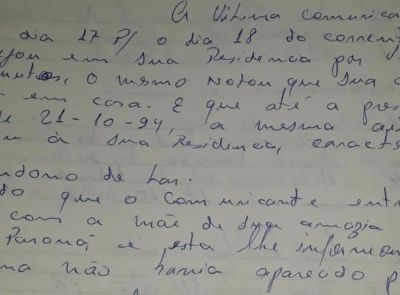 A Vitima comunica
dia 17 P/ o dia 18 do corrent
em sua Residencia por
o mesmo notou que sua
em casa. E que até a pres
21-10-94, a mesma
à sua Residencia, caracte
de Lar.
que o comunicante entr
com a mãe de sua amazia
Paraná e esta lhe informou
não havia aparecido p